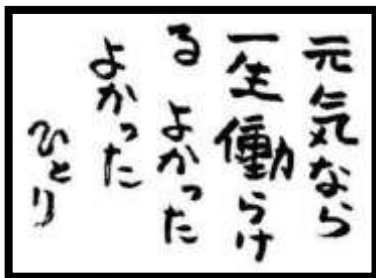 元気なら
一生働らけ
る よかった
よかった
ひとり